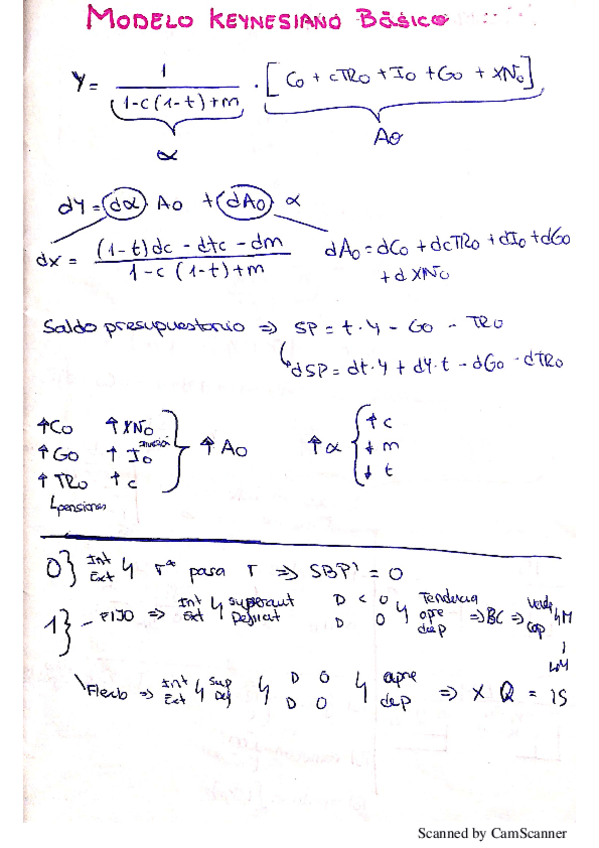 MODELO KEYNESIANO BÁSICO
Y = 1 / (1-c(1-t)+m) · [C0 + cTR0 + I0 + G0 + XN0]
α A0
dY = (dα) A0 + (dA0) α
dα = ((1-t)dc - dtc - dm) / (1-c(1-t)+m) dA0 = dC0 + dcTR0 + dI0 + dG0
+ dXN0
Saldo presupuestario ⇒ SP = t·Y - G0 - TR0
↳ dSP = dt·Y + dY·t - dG0 - dTR0
↑C0 ↑XN0
↑G0 ↑I0 ↑A0
↑TR0 ↑c
↳pensiones
↑α { ↑c
↓m
↓t
0} Int Ext ↳ r* para r ⇒ SBP' = 0
1} - FIJO ⇒ Int Ext ↳ D < O ↳ Tendencia apre dep ⇒ BC ⇒ ↳M
D O
↳M
Flexib ⇒ Int Ext ↳ Sup Def ↳ D O ↳ apre dep ⇒ X Q = IS
D O
Scanned by CamScanner